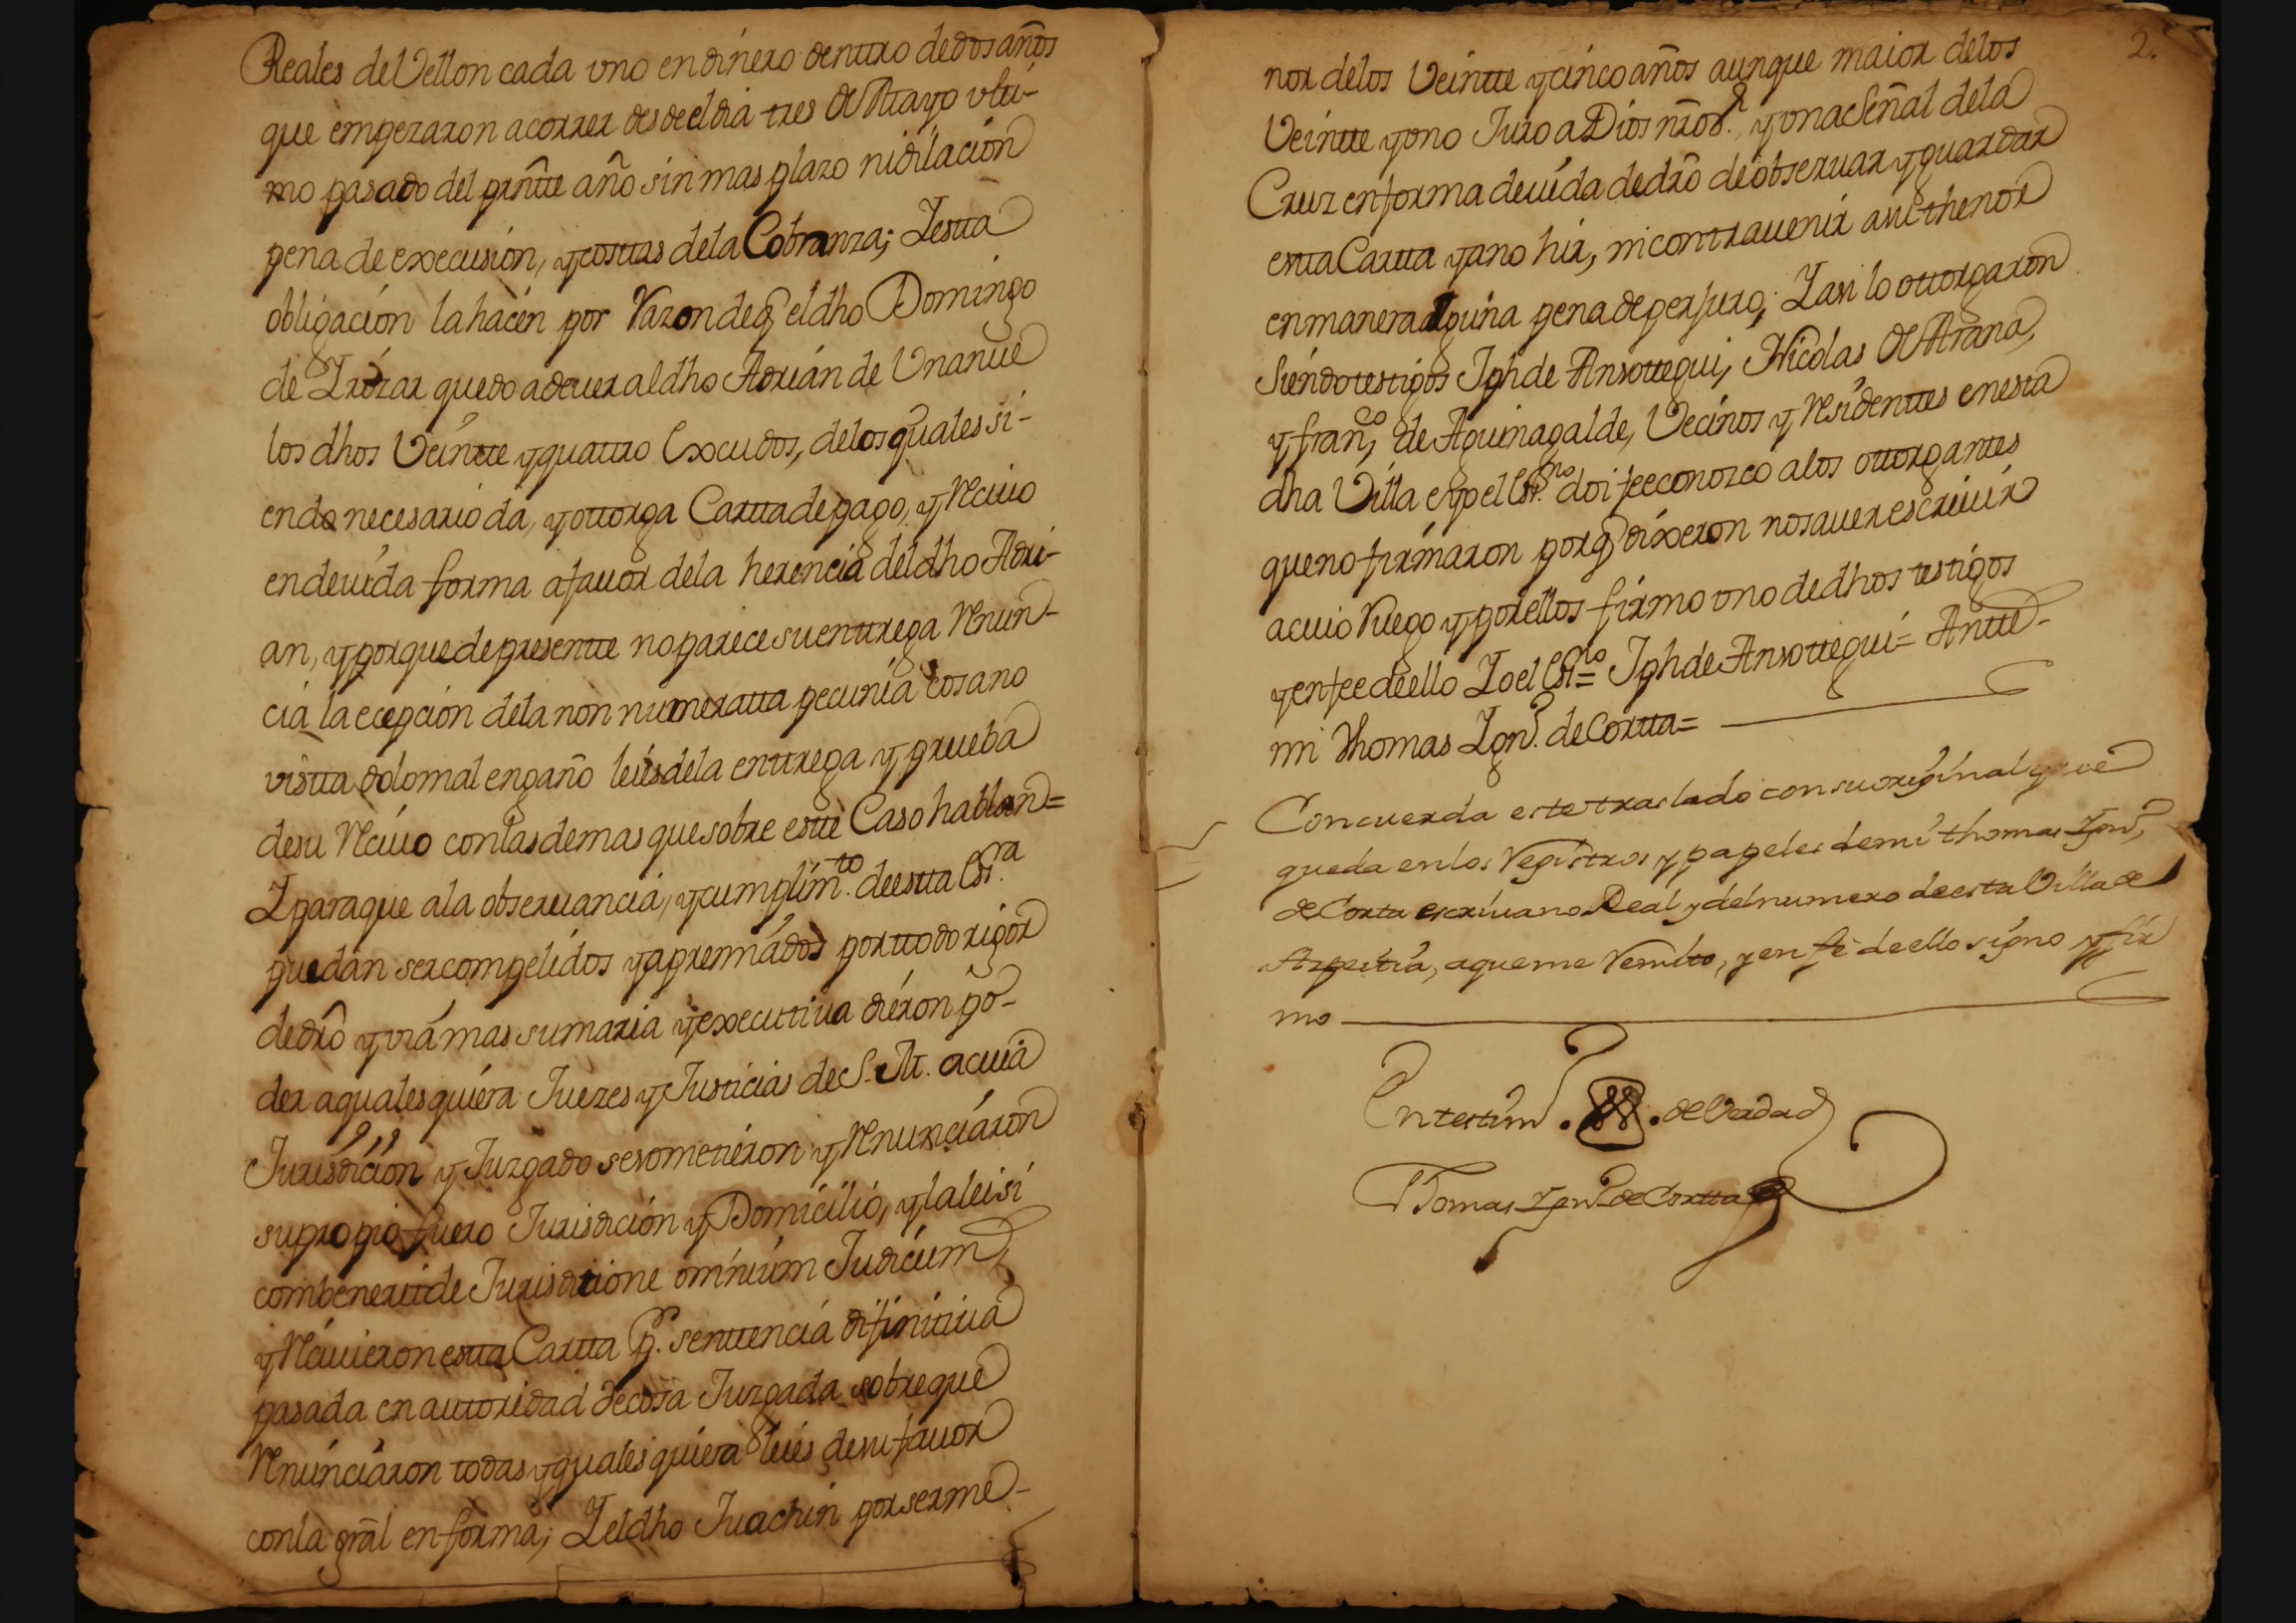 Reales de Vellon cada vno en dinero dentro de dos años
que empezaron a correr desde el dia tres de Mayo vlti-
mo pasado del prñtte año sin mas plazo ni dilacion
pena de execusion, y costtas de la Cobranza; Y estta
obligacion la hacen por razon de q̃ el dho Domingo
de Yrizar quedo a deuer al dho Adrian de Vnanue
los dhos Veintte y quattro Excudos, de los quales si-
endo necesario da, y ottorga Cartta de pago, y reciuo
en deuida forma a fauor de la herencia del dho Adri-
an, y porque de presentte no parece su enttrega renun-
cia la ecepcion de la non numeratta pecunia cosa no
vistta dolo mal engaño leies de la enttrega y prueba
de su reciuo con las demas que sobre estte Caso hablan=
Y para que a la obseruancia, y cumplim.to de estta Esr.ra
puedan ser compelidos y apremiados por ttodo rigor
de dro y via mas sumaria y executiua dieron po-
der a qualesquiera Juezes y Justicias de S. M. a cuia
Jurisdicion y Juzgado se sometieron y renunciaron
su propio fuero Jurisdicion y Domicilio, y la lei si
combenerit de Jurisditione omnium Judicum,
y reciuieron estta Cartta p.r senttencia difinitiua
pasada en autoridad de cosa Juzgada sobre que
renunciaron todas y qualesquiera leies de su fauor
con la grãl en forma; Y el dho Juachin por ser me-
2.
nor de los Veintte y cinco años aunque maior de los
Veintte y vno Juro a Dios nr̃o S.r, y vna Señal de la
Cruz en forma deuida de dr̃o de obseruar y guardar
estta Cartta y a no hir, ni contrauenir a su thenor
en manera alguina pena de perjuro; Y asi lo ottorgaron
Siendo testigos Jph de Ansottegui, Nicolas de Arana,
y fran.co de Aguinagalde, Vecinos y residenttes en esta
dha Villa e yo el Esr.no doi fee conozco a los ottorgantes
que no firmaron porq̃ dixeron no sauer escriuir
a cuio ruego y por ellos firmo vno de dhos testigos
y en fee de ello Yo el Esr.no= Jph de Ansottegui= Antte-
mi Thomas Ygn.o de Cortta=
Concuerda este traslado con su original que
queda en los registros y papeles de mi thomas Ygn.o
de Corta escriuano Real y del numero de esta Villa de
Azpeitia, a que me remito, y en fe de ello signo y fir
mo
En testim.o . . de Verdad
Thomas Ygn.o de Cortta